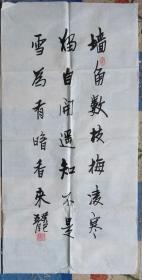 墙角数枝梅凌寒
独自开遇知不是
雪为有暗香来